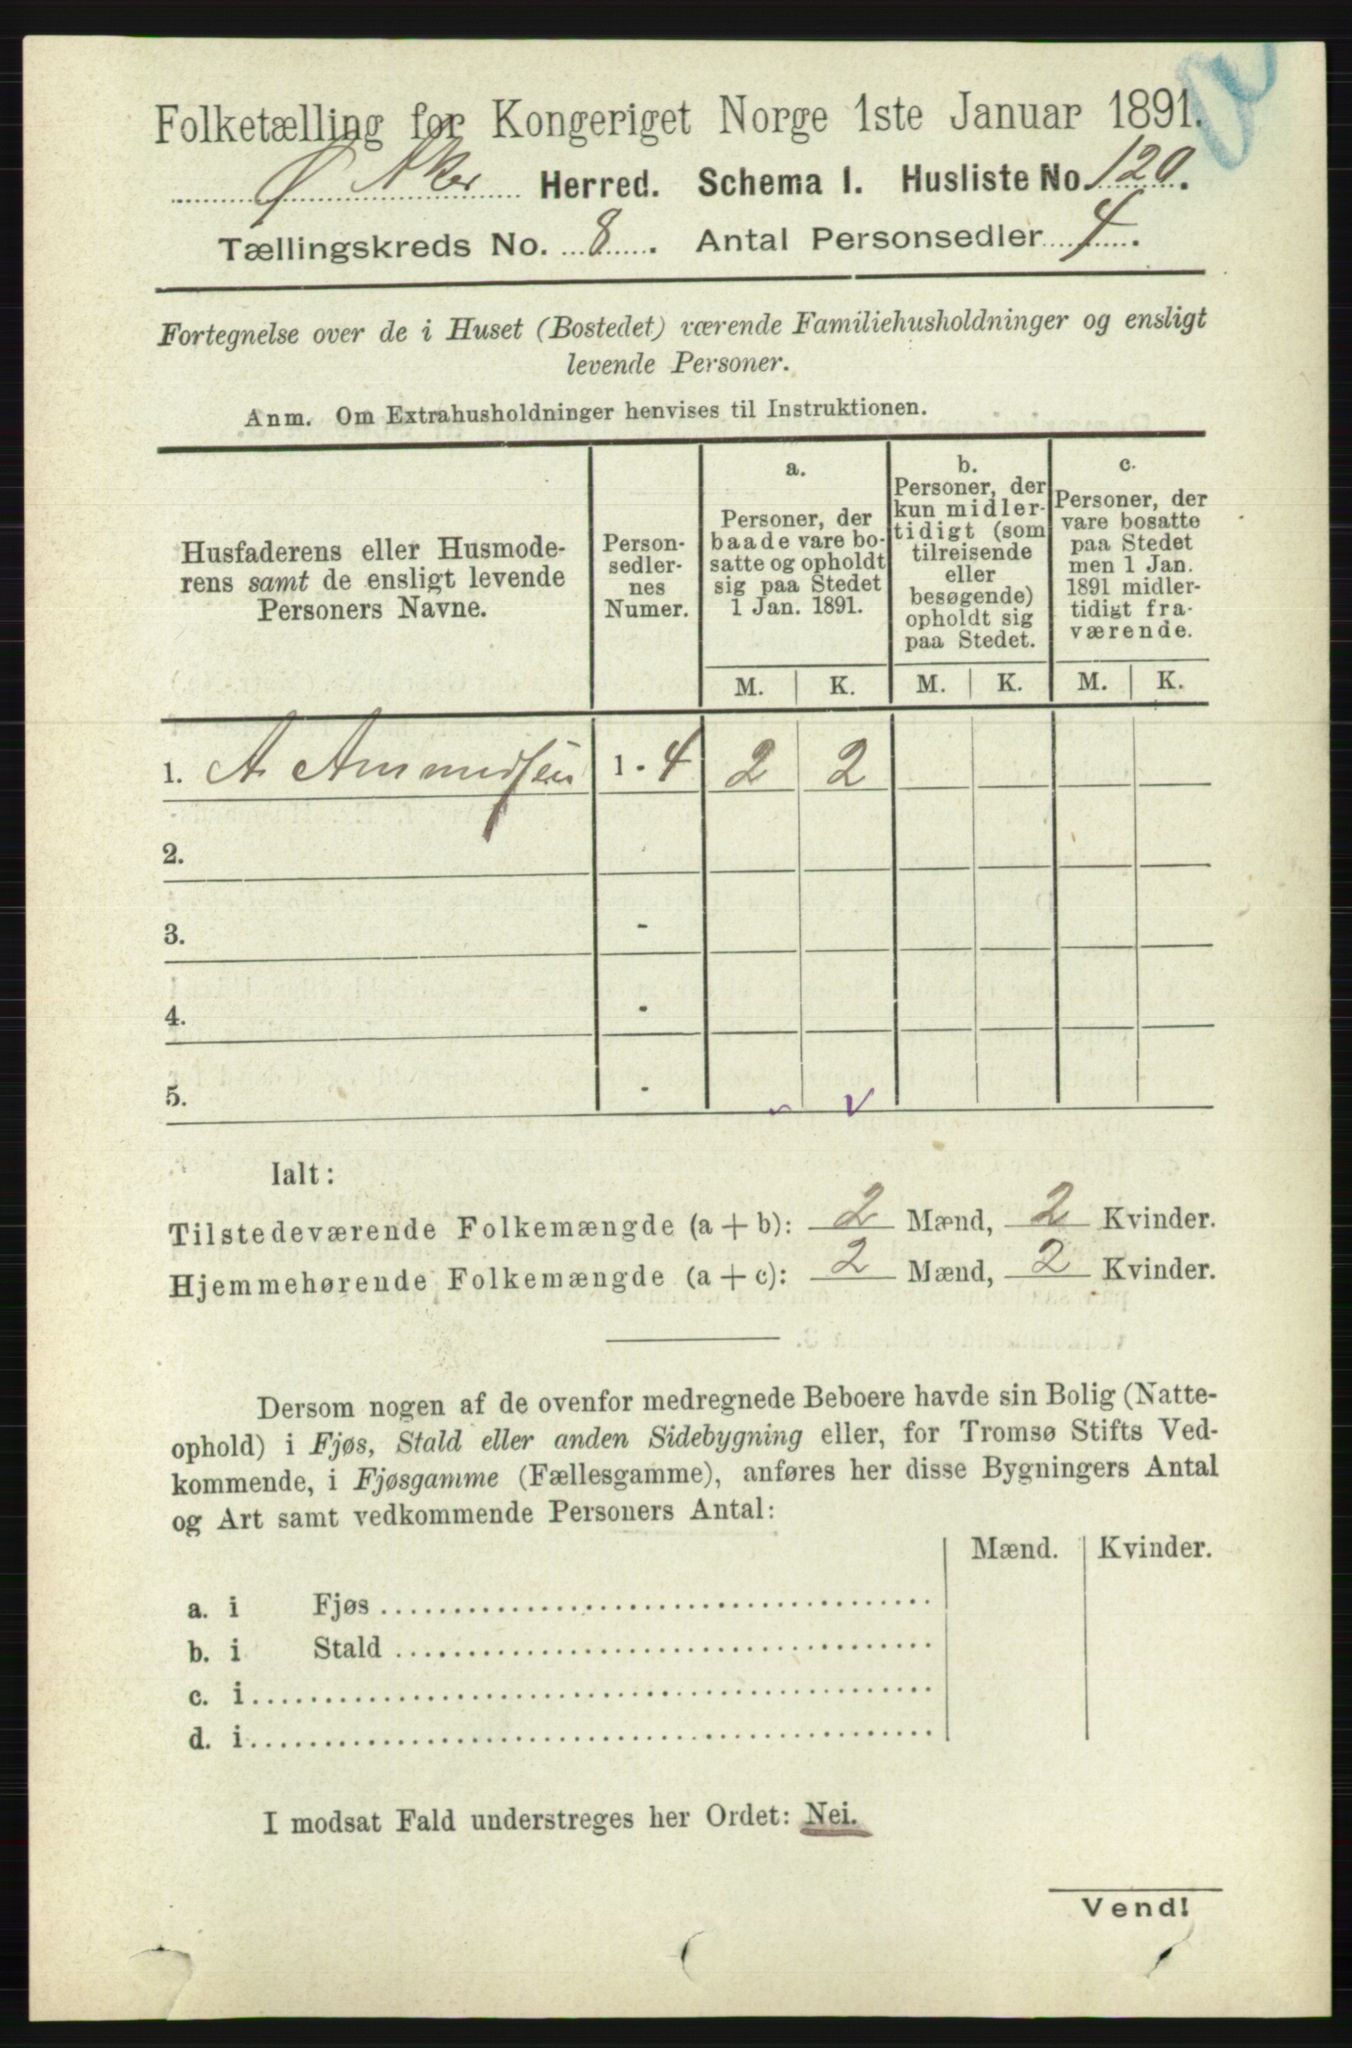 Folketælling for Kongeriget Norge 1ste Januar 1891.
Ø Aker Herred. Schema I. Husliste No. 120.
Tællingskreds No. 8. Antal Personsedler 4.
Fortegnelse over de i Huset (Bostedet) værende Familiehusholdninger og ensligt
levende Personer.
Anm. Om Extrahusholdninger henvises til Instruktionen.
Husfaderens eller Husmode-
rens samt de ensligt levende
Personers Navne.
Person-
sedler-
nes
Numer.
a.
Personer, der
baade vare bo-
satte og opholdt
sig paa Stedet
1 Jan. 1891.
b.
Personer, der
kun midler-
tidigt (som
tilreisende
eller
besøgende)
opholdt sig
paa Stedet.
c.
Personer, der
vare bosatte
paa Stedet
men 1 Jan.
1891 midler-
tidigt fra-
værende.
M. K. M. K. M. K.
1. A. Ammundsen 1 - 4 2 2
2.
3. -
4. -
5. -
Ialt:
Tilstedeværende Folkemængde (a + b): 2 Mænd, 2 Kvinder.
Hjemmehørende Folkemængde (a + c): 2 Mænd, 2 Kvinder.
Dersom nogen af de ovenfor medregnede Beboere havde sin Bolig (Natte-
ophold) i Fjøs, Stald eller anden Sidebygning eller, for Tromsø Stifts Ved-
kommende, i Fjøsgamme (Fællesgamme), anføres her disse Bygningers Antal
og Art samt vedkommende Personers Antal:
Mænd. Kvinder.
a. i Fjøs
b. i Stald
c. i
d. i
I modsat Fald understreges her Ordet: Nei.
Vend!